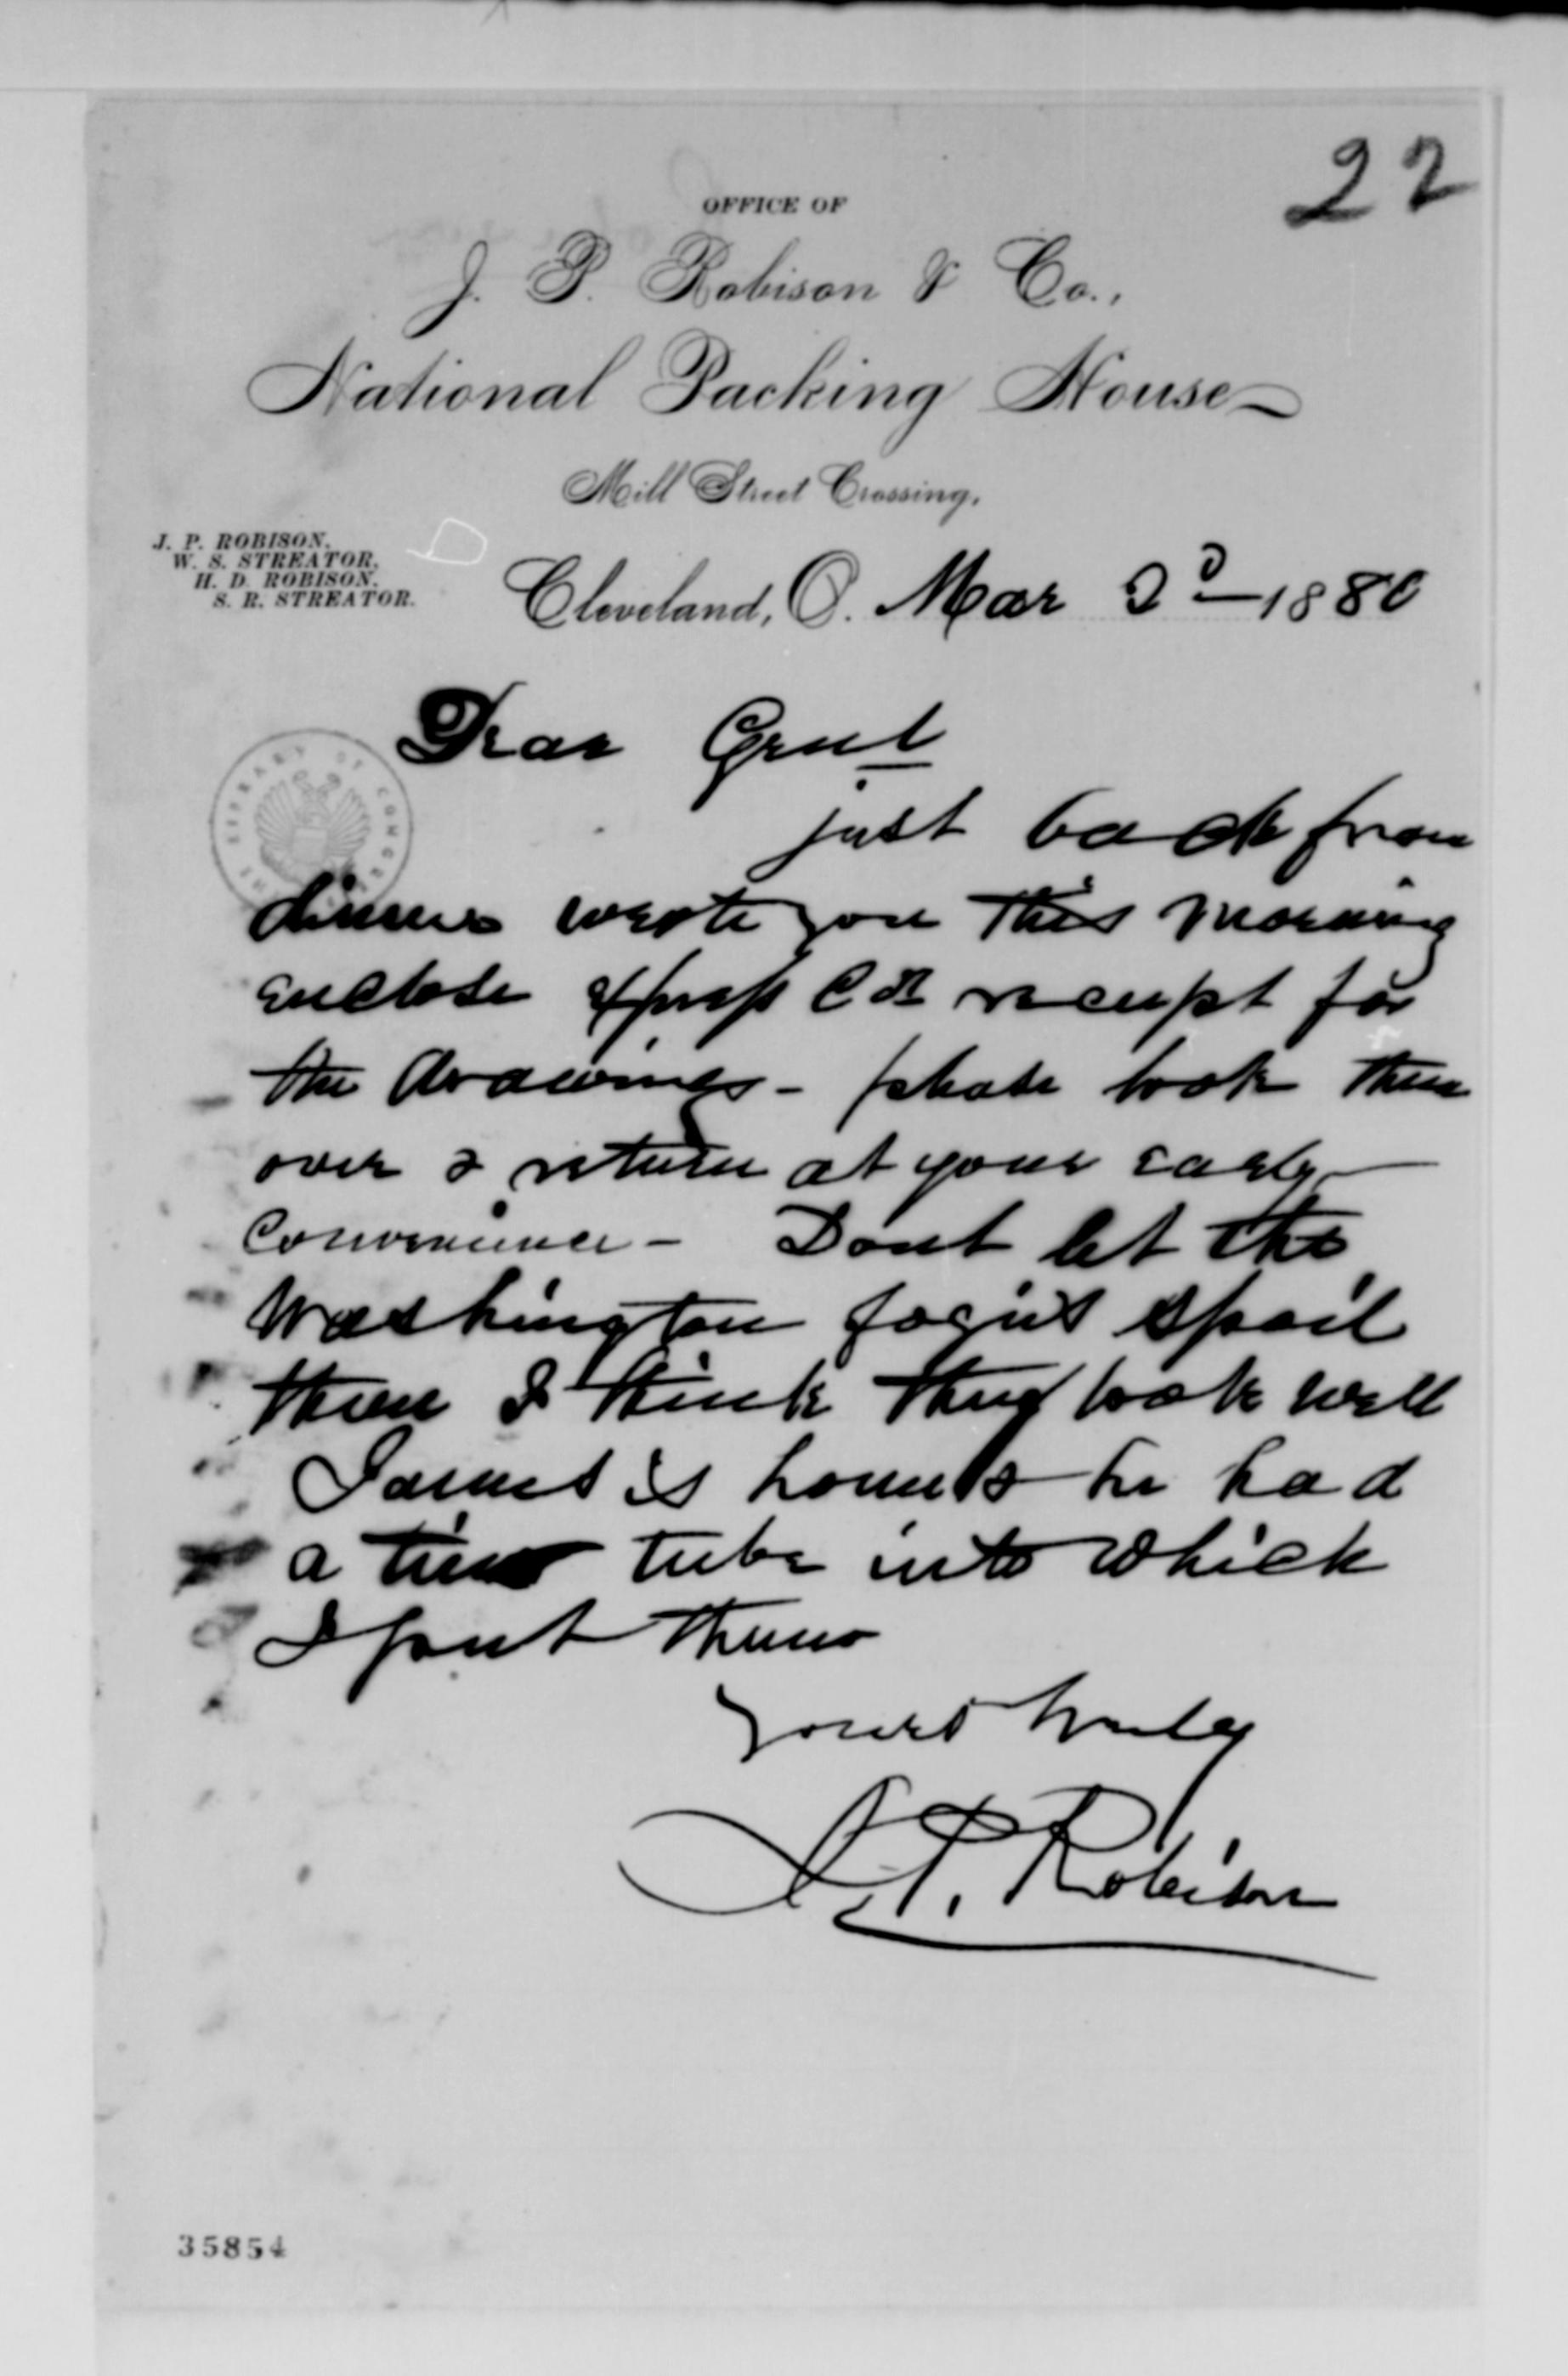 22
OFFICE OF
J. P. Robison & Co.,
National Packing House
Mill Street Crossing,
J. P. ROBISON,
W. S. STREATOR,
H. D. ROBISON,
S. R. STREATOR.
Cleveland, O. Mar 2d 1880
Dear Genl
just back from
dinner wrote you this morning
enclose Express Co receipt for
the drawings - please look them
over & return at your early
convenience - Dont let the
Washington fogies spoil
them I think they look well
James is home & he had
a tin tube into which
I put them
Yours truly
J. P. Robison
THE LIBRARY OF CONGRESS
35854